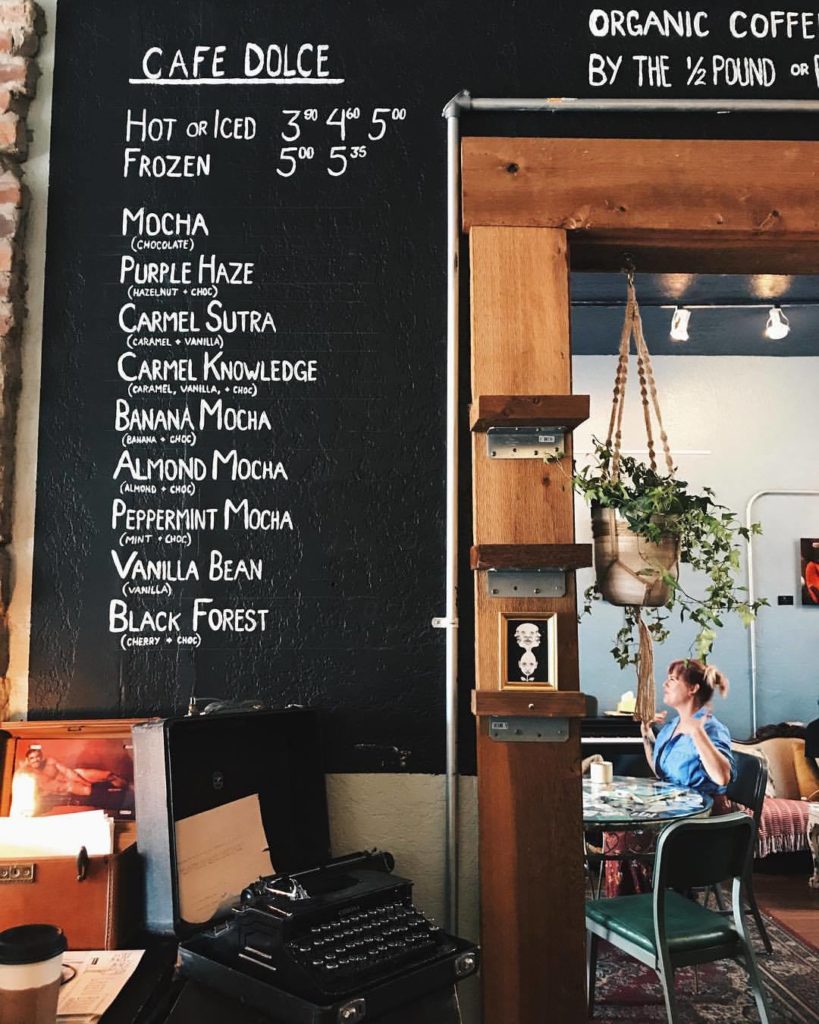 CAFE DOLCE
HOT OR ICED 3⁹⁰ 4⁶⁰ 5⁰⁰
FROZEN 5⁰⁰ 5³⁵
MOCHA
(CHOCOLATE)
PURPLE HAZE
(HAZELNUT + CHOC)
CARMEL SUTRA
(CARAMEL + VANILLA)
CARMEL KNOWLEDGE
(CARAMEL, VANILLA, + CHOC)
BANANA MOCHA
(BANANA + CHOC)
ALMOND MOCHA
(ALMOND + CHOC)
PEPPERMINT MOCHA
(MINT + CHOC)
VANILLA BEAN
(VANILLA)
BLACK FOREST
(CHERRY + CHOC)
ORGANIC COFFE
BY THE ½ POUND OR